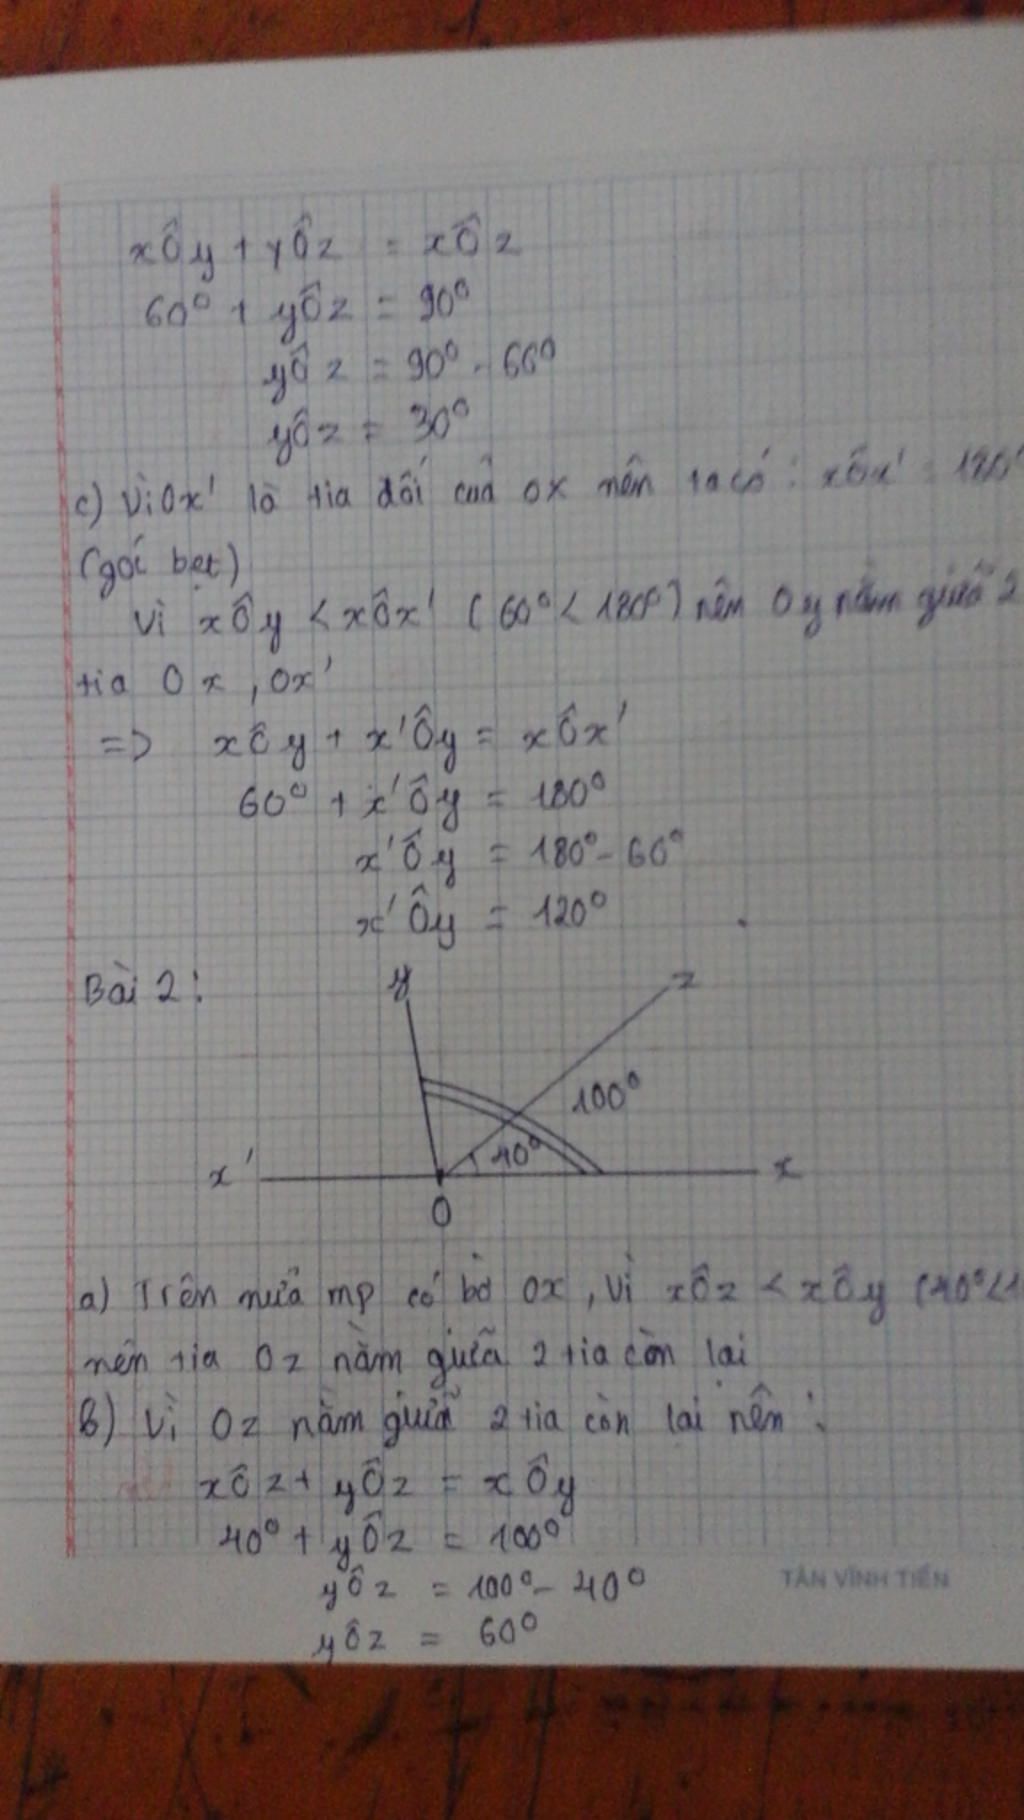 xÔy + yÔz = xÔz
60° + yÔz = 90°
yÔz = 90° - 60°
yÔz = 30°
c) Vì Ox' là tia đối của Ox nên ta có : xÔx' = 180°
(góc bẹt)
Vì xÔy < xÔx' (60° < 180°) nên Oy nằm giữa 2
tia Ox, Ox'
=> xÔy + x'Ôy = xÔx'
60° + x'Ôy = 180°
x'Ôy = 180° - 60°
x'Ôy = 120°
Bài 2:
y
z
100°
40°
x'
x
O
a) Trên nửa mp có bờ Ox, Vì xÔz < xÔy (40° < 1
nên tia Oz nằm giữa 2 tia còn lại
b) Vì Oz nằm giữa 2 tia còn lại nên :
xÔz + yÔz = xÔy
40° + yÔz = 100°
yÔz = 100° - 40°
TÂN VĨNH TIẾN
yÔz = 60°